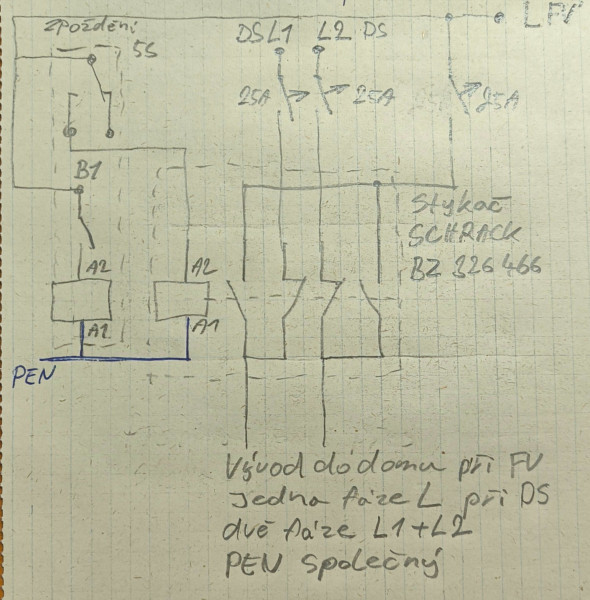 LFV
zpoždění
5S
DS L1 L2 DS
25A
25A
25A
B1
Stykač
SCHRACK
BZ 326 466
A2
A2
A1
A1
PEN
Vývod do domu při FV
jedna fáze L při DS
dvě fáze L1+L2
PEN společný